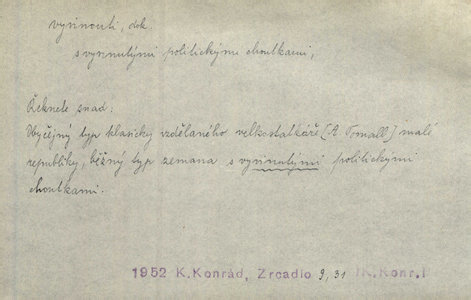 vyvinouti, dok.
s vyvinutými politickými choutkami,
Řeknete snad:
Obyčejný typ klasicky vzdělaného velkostatkáře (R. Tomall) malé
republiky, běžný typ zemana s vyvinutými politickými
choutkami.
1952 K.Konrád, Zrcadlo 9, 31 (K.Konr.)